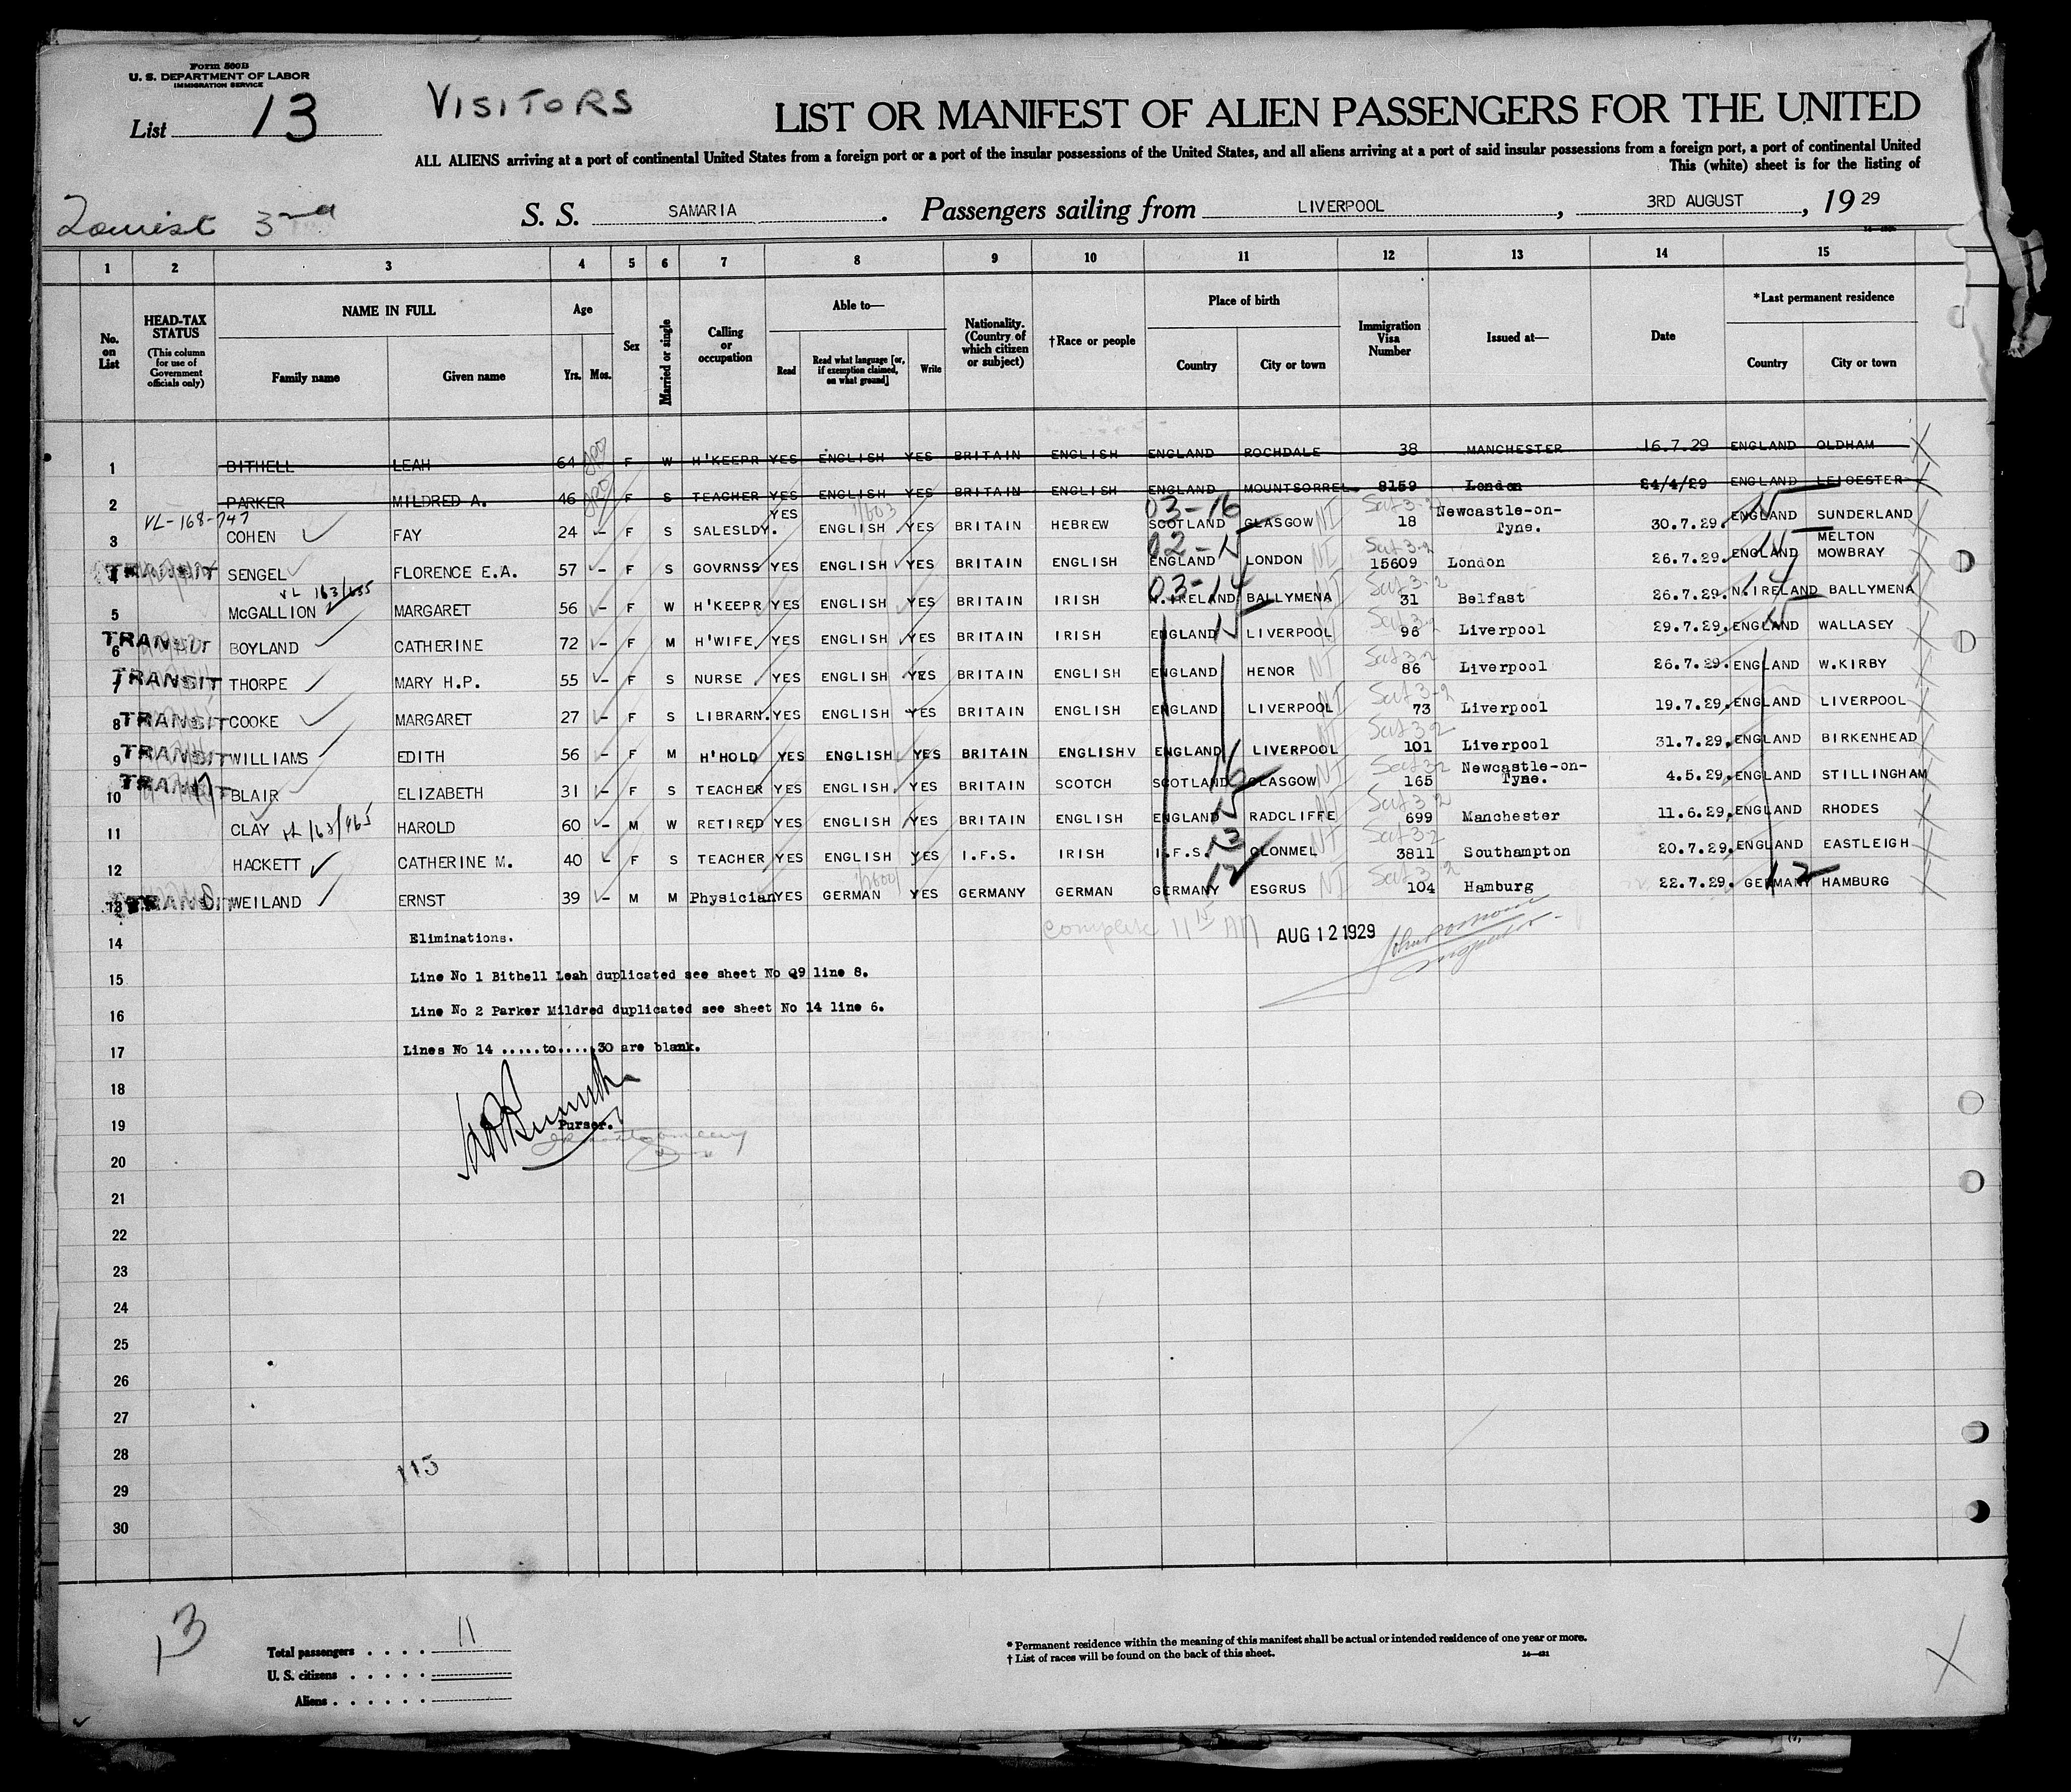 Form 500B
U. S. DEPARTMENT OF LABOR
IMMIGRATION SERVICE
List 13
VISITORS
LIST OR MANIFEST OF ALIEN PASSENGERS FOR THE UNITED
ALL ALIENS arriving at a port of continental United States from a foreign port or a port of the insular possessions of the United States, and all aliens arriving at a port of said insular possessions from a foreign port, a port of continental United
This (white) sheet is for the listing of
Tourist 3rd
S. S. SAMARIA. Passengers sailing from LIVERPOOL, 3RD AUGUST, 1929
1 2 3 4 5 6 7 8 9 10 11 12 13 14 15
No. on List
HEAD-TAX STATUS (This column for use of Government officials only)
NAME IN FULL Family name Given name
Age Yrs. Mos.
Sex
Married or single
Calling or occupation
Able to— Read Read what language [or, if exemption claimed, on what ground] Write
Nationality. (Country of which citizen or subject)
†Race or people
Place of birth Country City or town
Immigration Visa Number
Issued at—
Date
*Last permanent residence Country City or town
1 BITHELL LEAH 64 F W H'KEEPR YES ENGLISH YES BRITAIN ENGLISH ENGLAND ROCHDALE 38 MANCHESTER 16.7.29 ENGLAND OLDHAM
2 PARKER MILDRED A. 46 F S TEACHER YES ENGLISH YES BRITAIN ENGLISH ENGLAND MOUNTSORREL 8159 London 24/4/29 ENGLAND LEICESTER
VL-168-747 03-16
3 COHEN FAY 24 - F S SALESLDY. YES ENGLISH YES BRITAIN HEBREW SCOTLAND GLASGOW NI 18 Newcastle-on-Tyne. 30.7.29. ENGLAND SUNDERLAND
4 TRANSIT SENGEL FLORENCE E.A. 57 - F S GOVRNSS YES ENGLISH YES BRITAIN ENGLISH ENGLAND LONDON NI 15609 London 26.7.29. ENGLAND MELTON MOWBRAY
VL 163/635 03-14
5 McGALLION MARGARET 56 - F W H'KEEPR YES ENGLISH YES BRITAIN IRISH N.IRELAND BALLYMENA NI 31 Belfast 26.7.29. N.IRELAND BALLYMENA
6 TRANSIT BOYLAND CATHERINE 72 - F M H'WIFE YES ENGLISH YES BRITAIN IRISH ENGLAND LIVERPOOL NI 96 Liverpool 29.7.29. ENGLAND WALLASEY
7 TRANSIT THORPE MARY H.P. 55 - F S NURSE YES ENGLISH YES BRITAIN ENGLISH ENGLAND HENOR NI 86 Liverpool 26.7.29. ENGLAND W.KIRBY
8 TRANSIT COOKE MARGARET 27 - F S LIBRARN. YES ENGLISH YES BRITAIN ENGLISH ENGLAND LIVERPOOL NI 73 Liverpool 19.7.29. ENGLAND LIVERPOOL
9 TRANSIT WILLIAMS EDITH 56 - F M H'HOLD YES ENGLISH YES BRITAIN ENGLISH ENGLAND LIVERPOOL NI 101 Liverpool 31.7.29. ENGLAND BIRKENHEAD
10 TRANSIT BLAIR ELIZABETH 31 - F S TEACHER YES ENGLISH. YES BRITAIN SCOTCH SCOTLAND GLASGOW NI 165 Newcastle-on-Tyne. 4.5.29. ENGLAND STILLINGHAM
11 CLAY HAROLD 60 - M W RETIRED YES ENGLISH YES BRITAIN ENGLISH ENGLAND RADCLIFFE NI 699 Manchester 11.6.29. ENGLAND RHODES
12 HACKETT CATHERINE M. 40 - F S TEACHER YES ENGLISH YES I.F.S. IRISH I.F.S. CLONMEL NI 3811 Southampton 20.7.29. ENGLAND EASTLEIGH
13 TRANSIT WEILAND ERNST 39 - M M Physician YES GERMAN YES GERMANY GERMAN GERMANY ESGRUS NI 104 Hamburg 22.7.29. GERMANY 12 HAMBURG
14 Eliminations. AUG 12 1929
15 Line No 1 Bithell Leah duplicated see sheet No 29 line 8.
16 Line No 2 Parker Mildred duplicated see sheet No 14 line 6.
17 Lines No 14 .....to.....30 are blank.
18
19 Purser.
20
21
22
23
24
25
26
27
28
115
29
30
13
Total passengers . . . . 11
U. S. citizens . . . . .
Aliens . . . . . .
* Permanent residence within the meaning of this manifest shall be actual or intended residence of one year or more.
† List of races will be found on the back of this sheet.